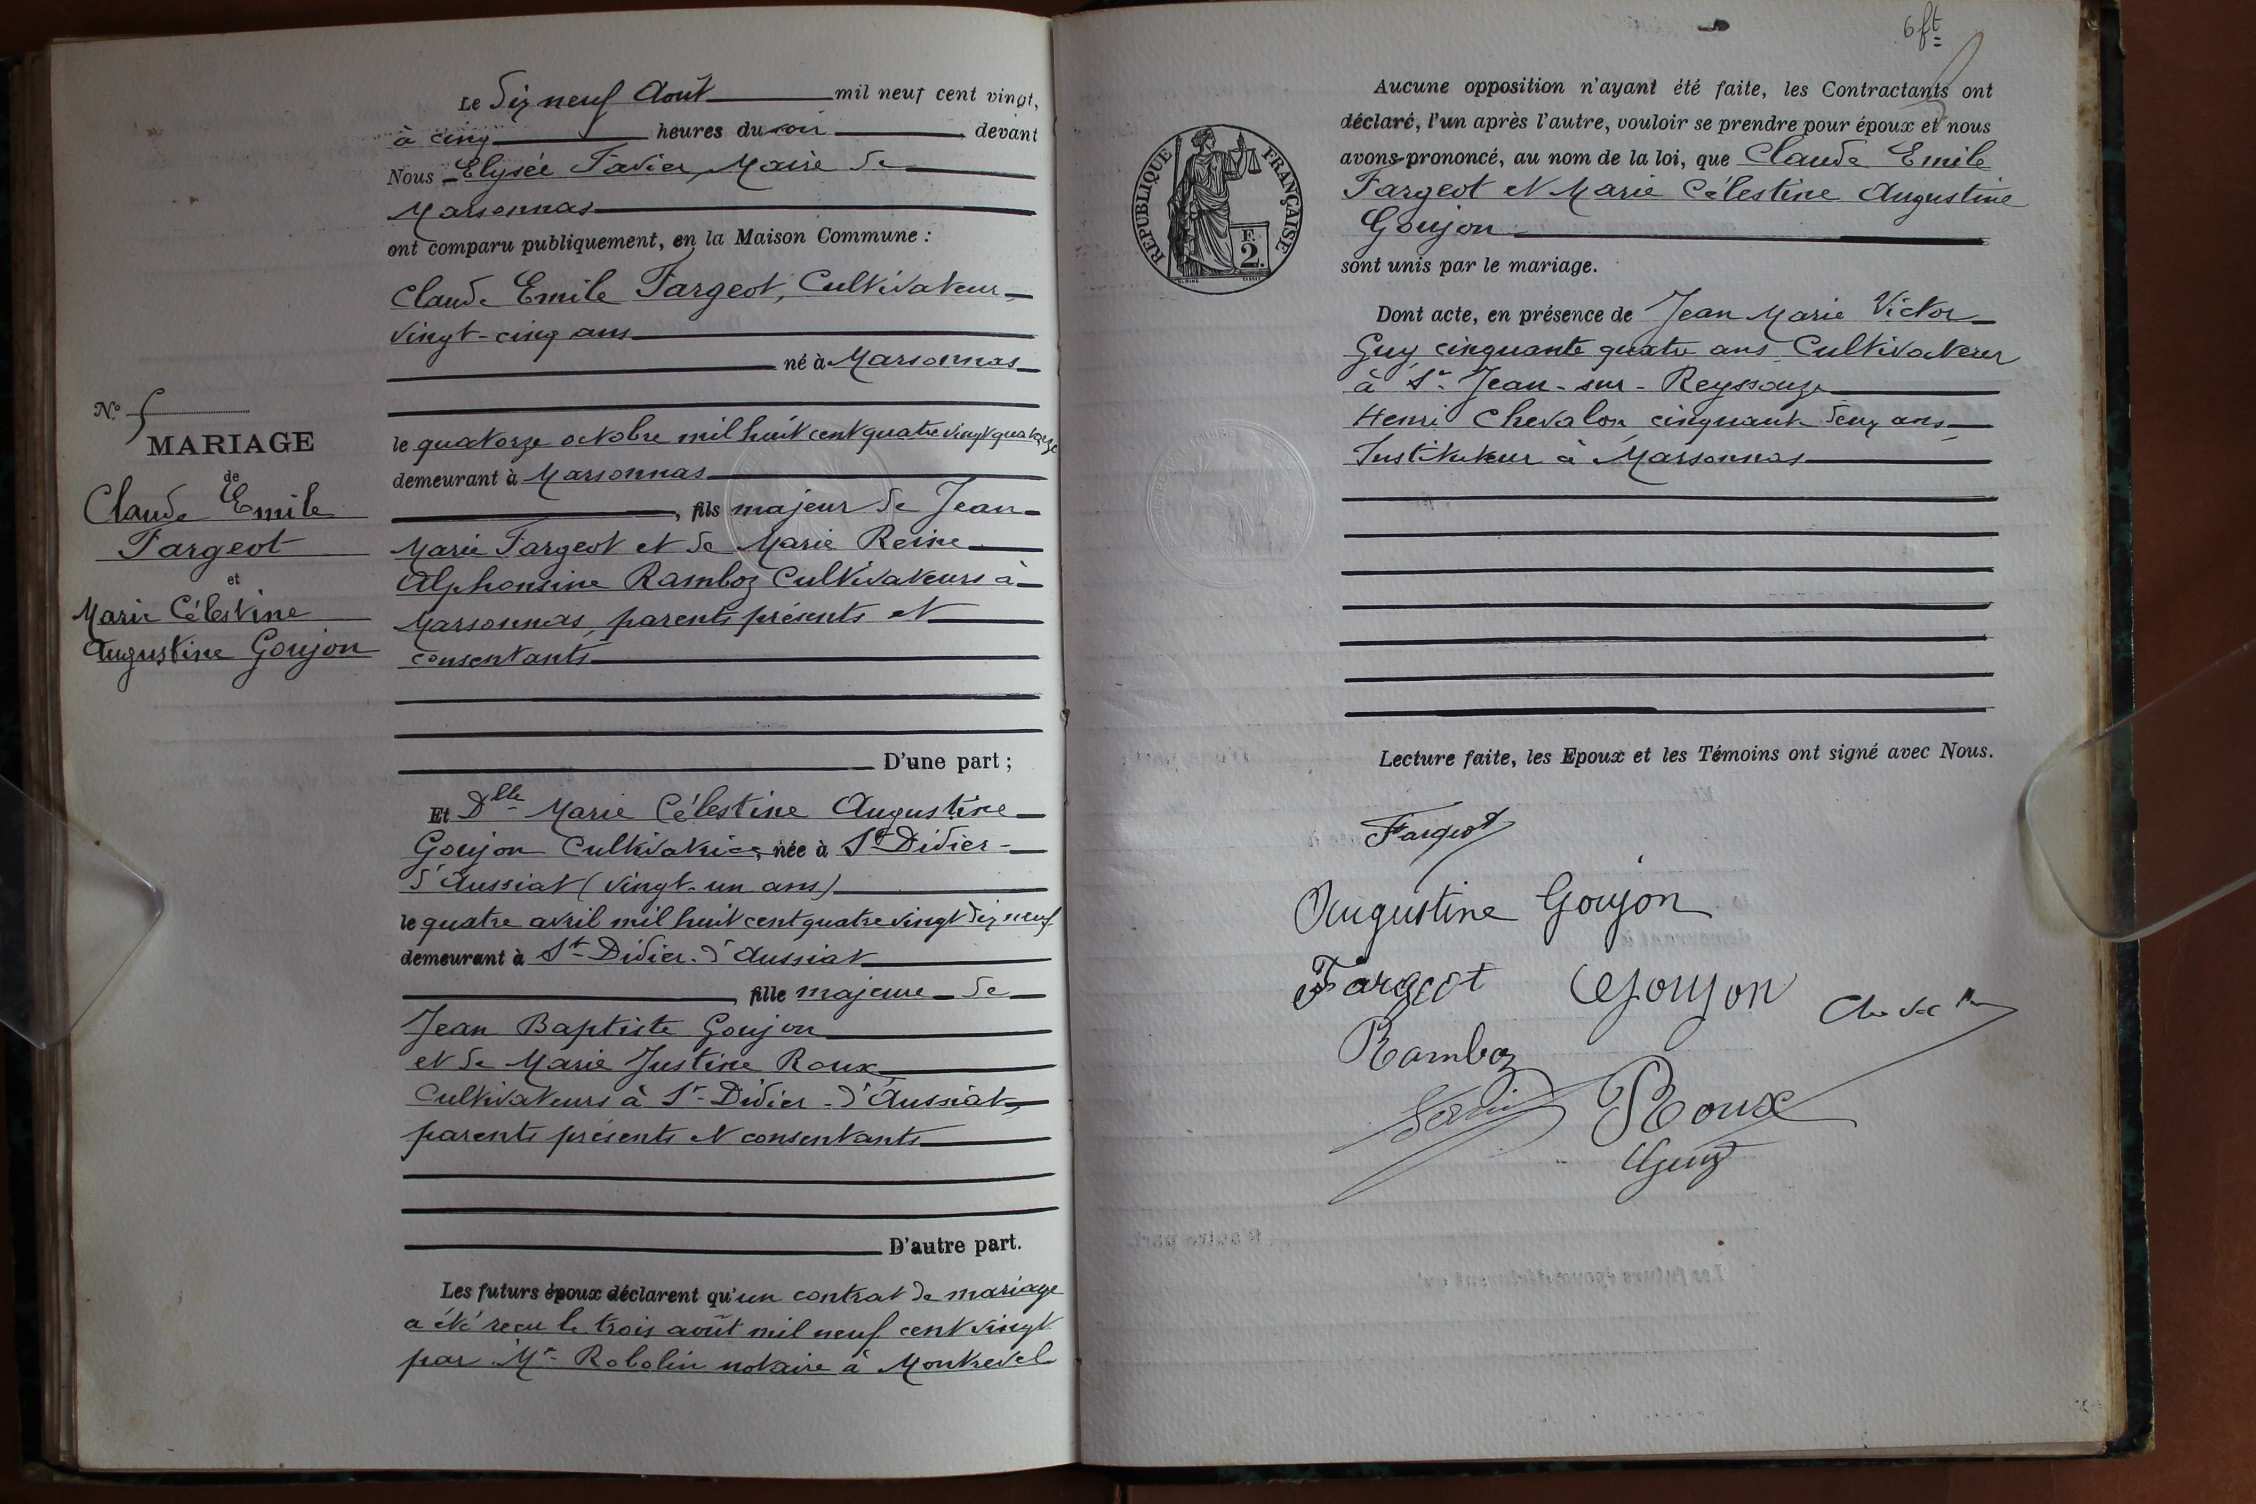 Le Dix neuf Août mil neuf cent vingt,
à cinq heures du soir devant
Nous Elysée Favier, Maire de
Marsonnas
ont comparu publiquement, en la Maison Commune :
Claude Emile Fargeot, Cultivateur
vingt-cinq ans
né à Marsonnas
le quatorze octobre mil huit cent quatre vingt quatorze
demeurant à Marsonnas
, fils majeur de Jean
Marie Fargeot et de Marie Reine
Alphonsine Ramboz Cultivateurs à
Marsonnas, parents présents et
consentants
D'une part ;
Et Dlle Marie Célestine Augustine
Goujon Cultivatrice, née à St Didier-
d'Aussiat (vingt-un ans)
le quatre avril mil huit cent quatre vingt dix neuf
demeurant à St-Didier-d'Aussiat
, fille majeure de
Jean Baptiste Goujon
et de Marie Justine Roux
Cultivateurs à St-Didier-d'Aussiat,
parents présents et consentants
D'autre part.
Les futurs époux déclarent qu'un contrat de mariage
a été reçu le trois août mil neuf cent vingt
par Me Robolin notaire à Montrevel
N.o 5
MARIAGE
de
Claude Emile
Fargeot
et
Marie Célestine
Augustine Goujon
6 ft
Aucune opposition n'ayant été faite, les Contractants ont
déclaré, l'un après l'autre, vouloir se prendre pour époux et nous
avons prononcé, au nom de la loi, que Claude Emile
Fargeot et Marie Célestine Augustine
Goujon
sont unis par le mariage.
RÉPUBLIQUE FRANÇAISE
F.
2.
Dont acte, en présence de Jean Marie Victor
Guy cinquante quatre ans Cultivateur
à St-Jean-sur-Reyssouze
Henri Chevalon cinquante deux ans
Instituteur à Marsonnas
Lecture faite, les Epoux et les Témoins ont signé avec Nous.
Fargeot
Augustine Goujon
Fargeot Goujon
Ramboz
Roux
Guy